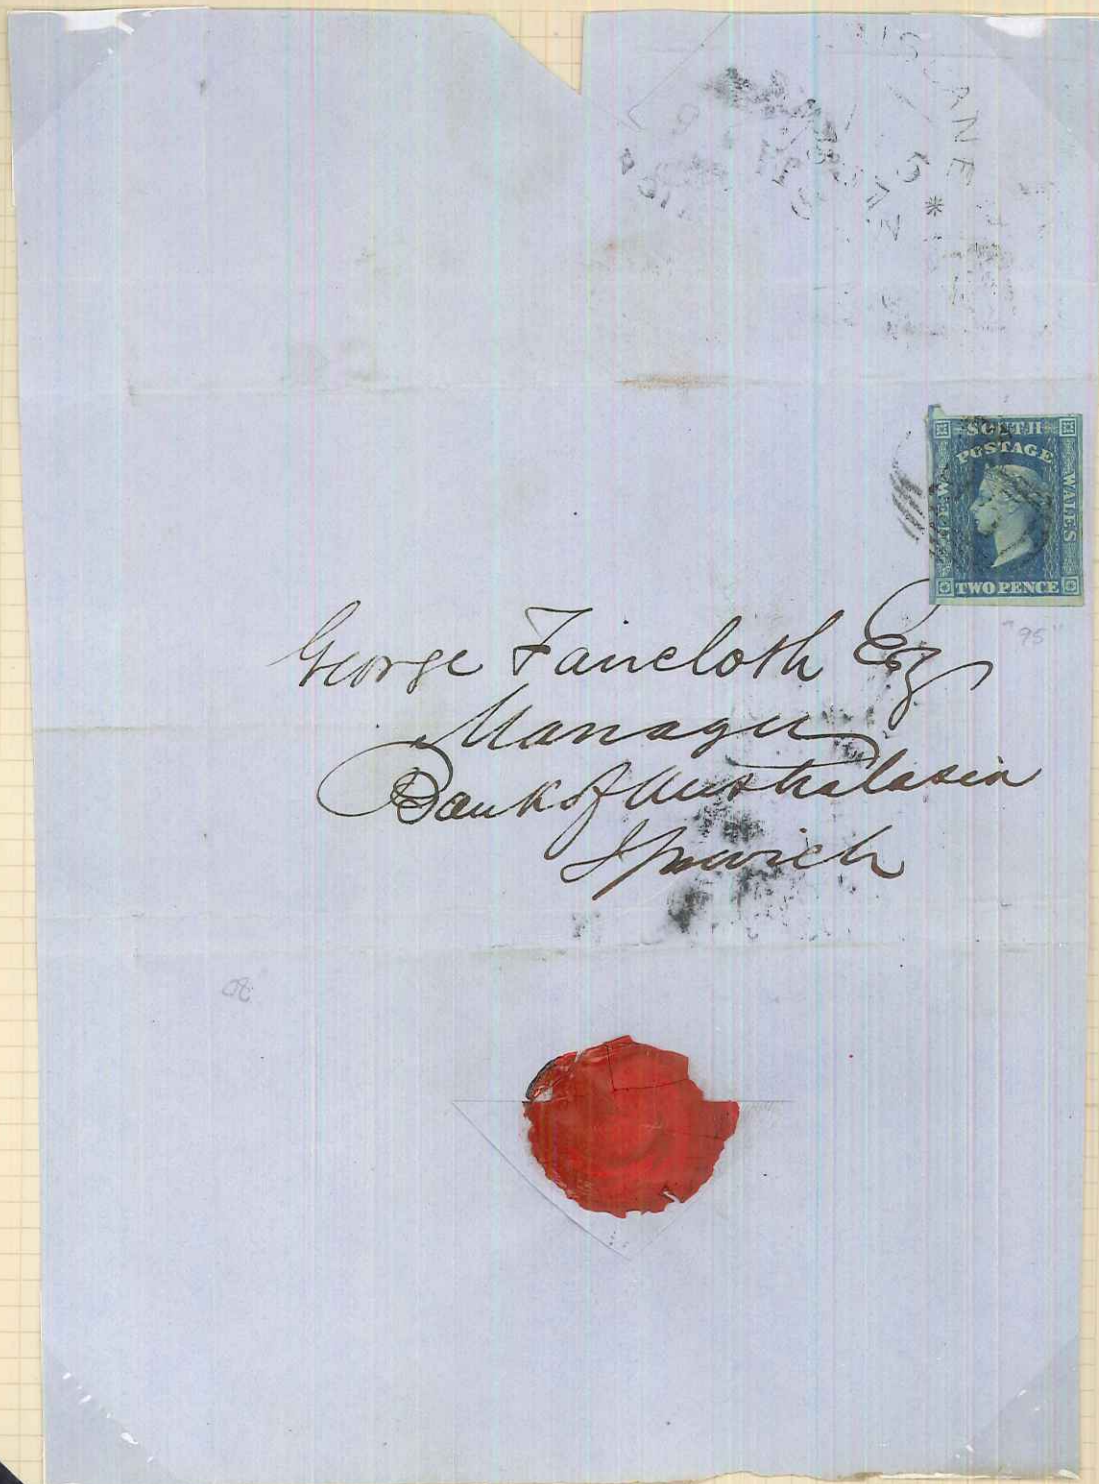 BRISBANE
5
*
SOUTH
POSTAGE
NEW
WALES
TWO PENCE
"95"
George Faircloth Esq
Manager
Bank of Australasia
Ipswich